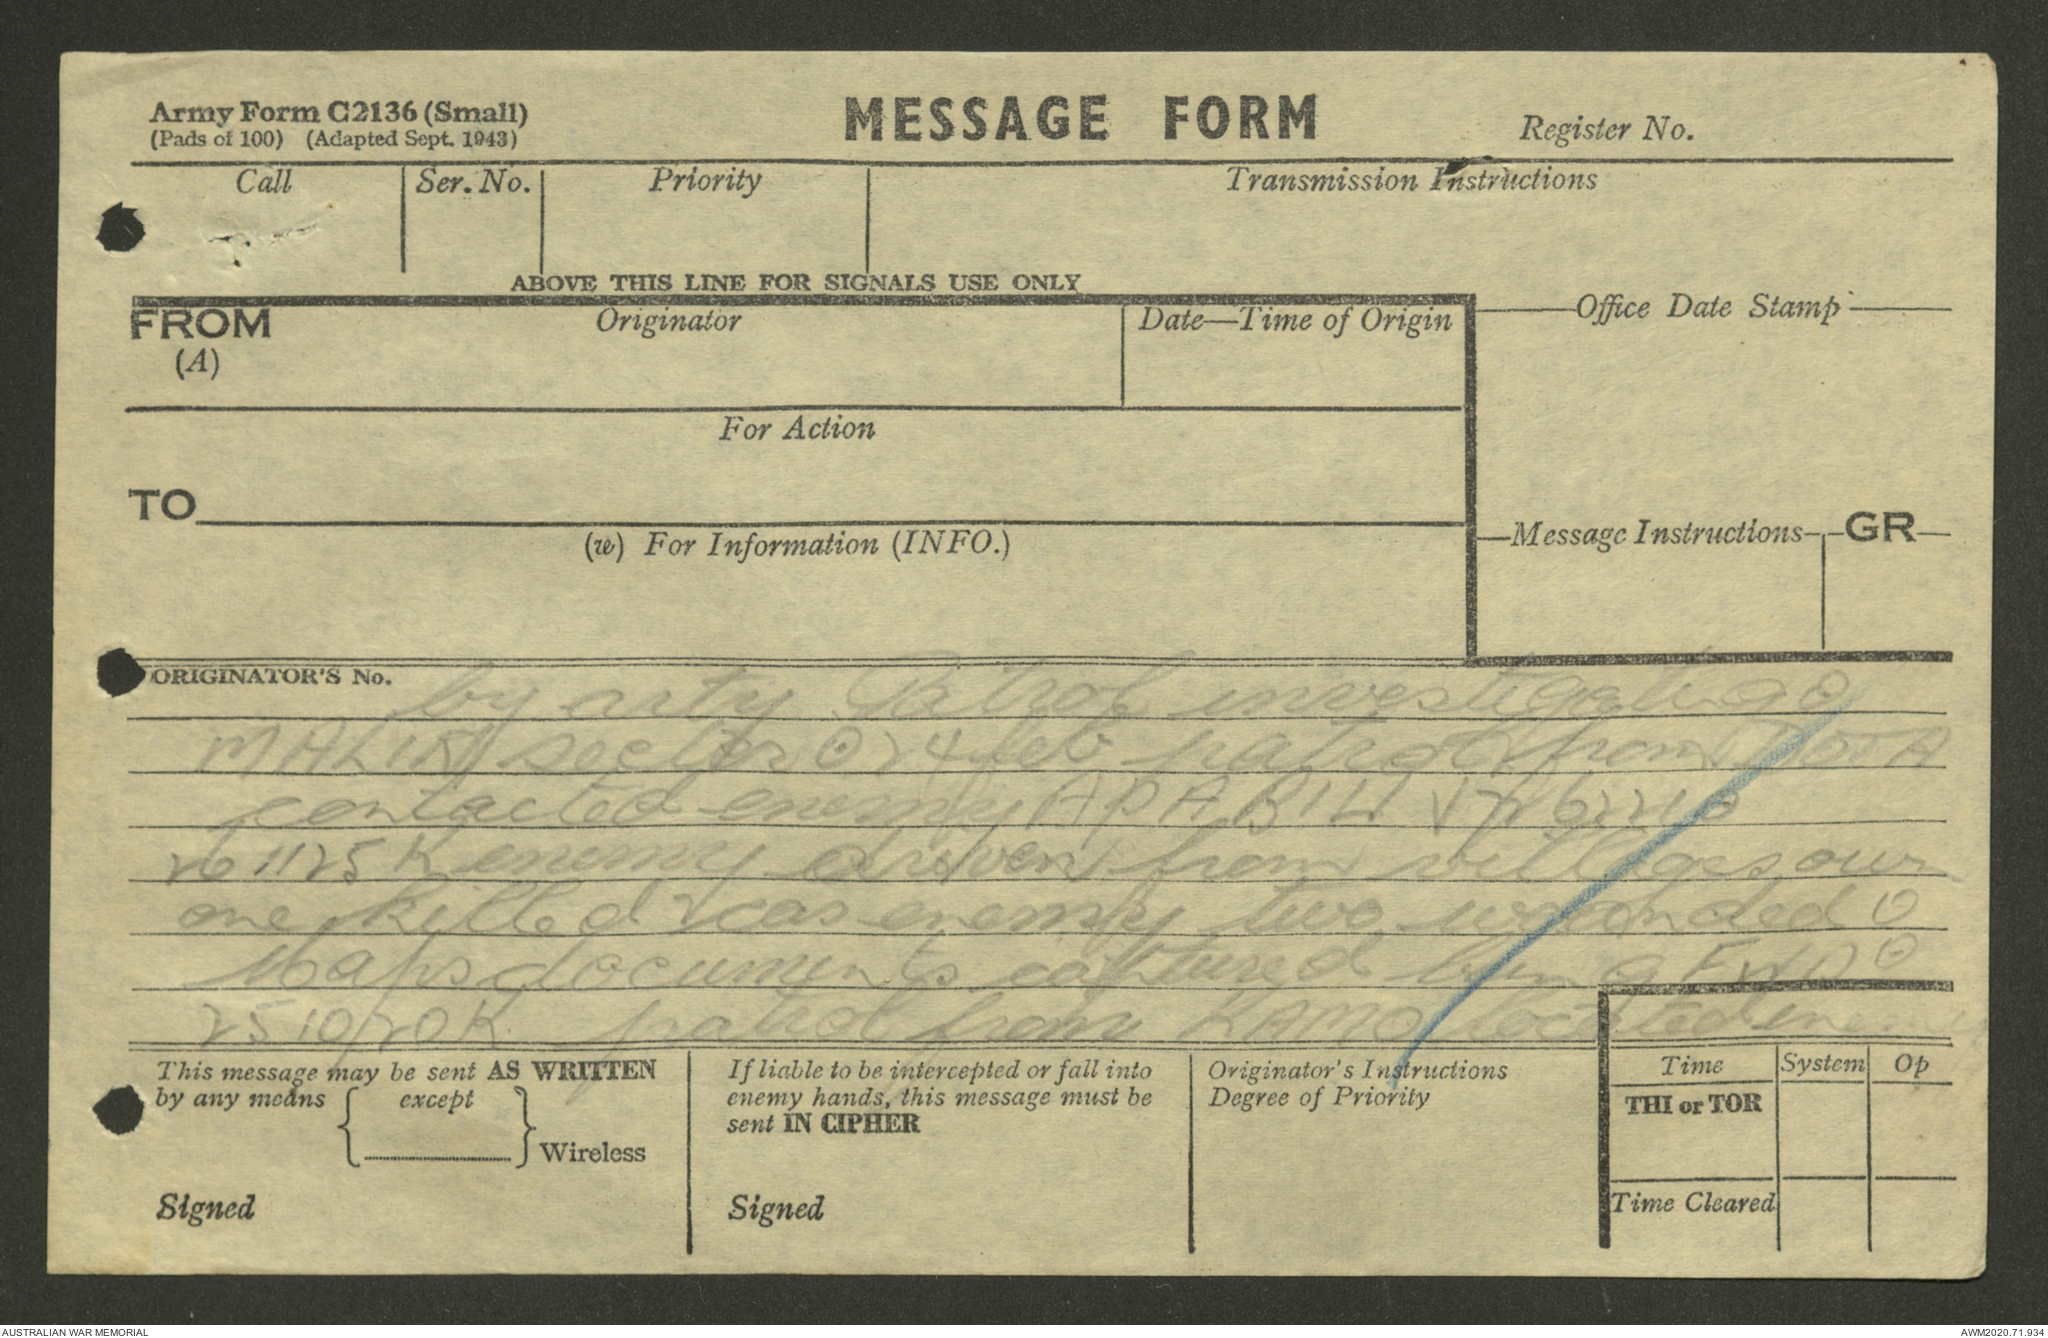 Army Form C2136 (Small)
(Pads of 100) (Adapted Sept. 1943)
MESSAGE FORM
Register No.
Call Ser. No. Priority Transmission Instructions
ABOVE THIS LINE FOR SIGNALS USE ONLY
FROM
(A)
Originator
Date—Time of Origin
Office Date Stamp
For Action
TO
(w) For Information (INFO.)
Message Instructions GR
ORIGINATOR'S No.
by arty Patrol investigating ⊙
sector ⊙ 24 feb patrol from
contacted enemy
261125K enemy driven from villages our
one killed enemy two wounded ⊙
Maps documents captured being FWD ⊙
251020K patrol from located enemy
This message may be sent AS WRITTEN
by any means except
Wireless
Signed
If liable to be intercepted or fall into
enemy hands, this message must be
sent IN CIPHER
Signed
Originator's Instructions
Degree of Priority
Time System Op
THI or TOR
Time Cleared
AUSTRALIAN WAR MEMORIAL
AWM2020.71.934